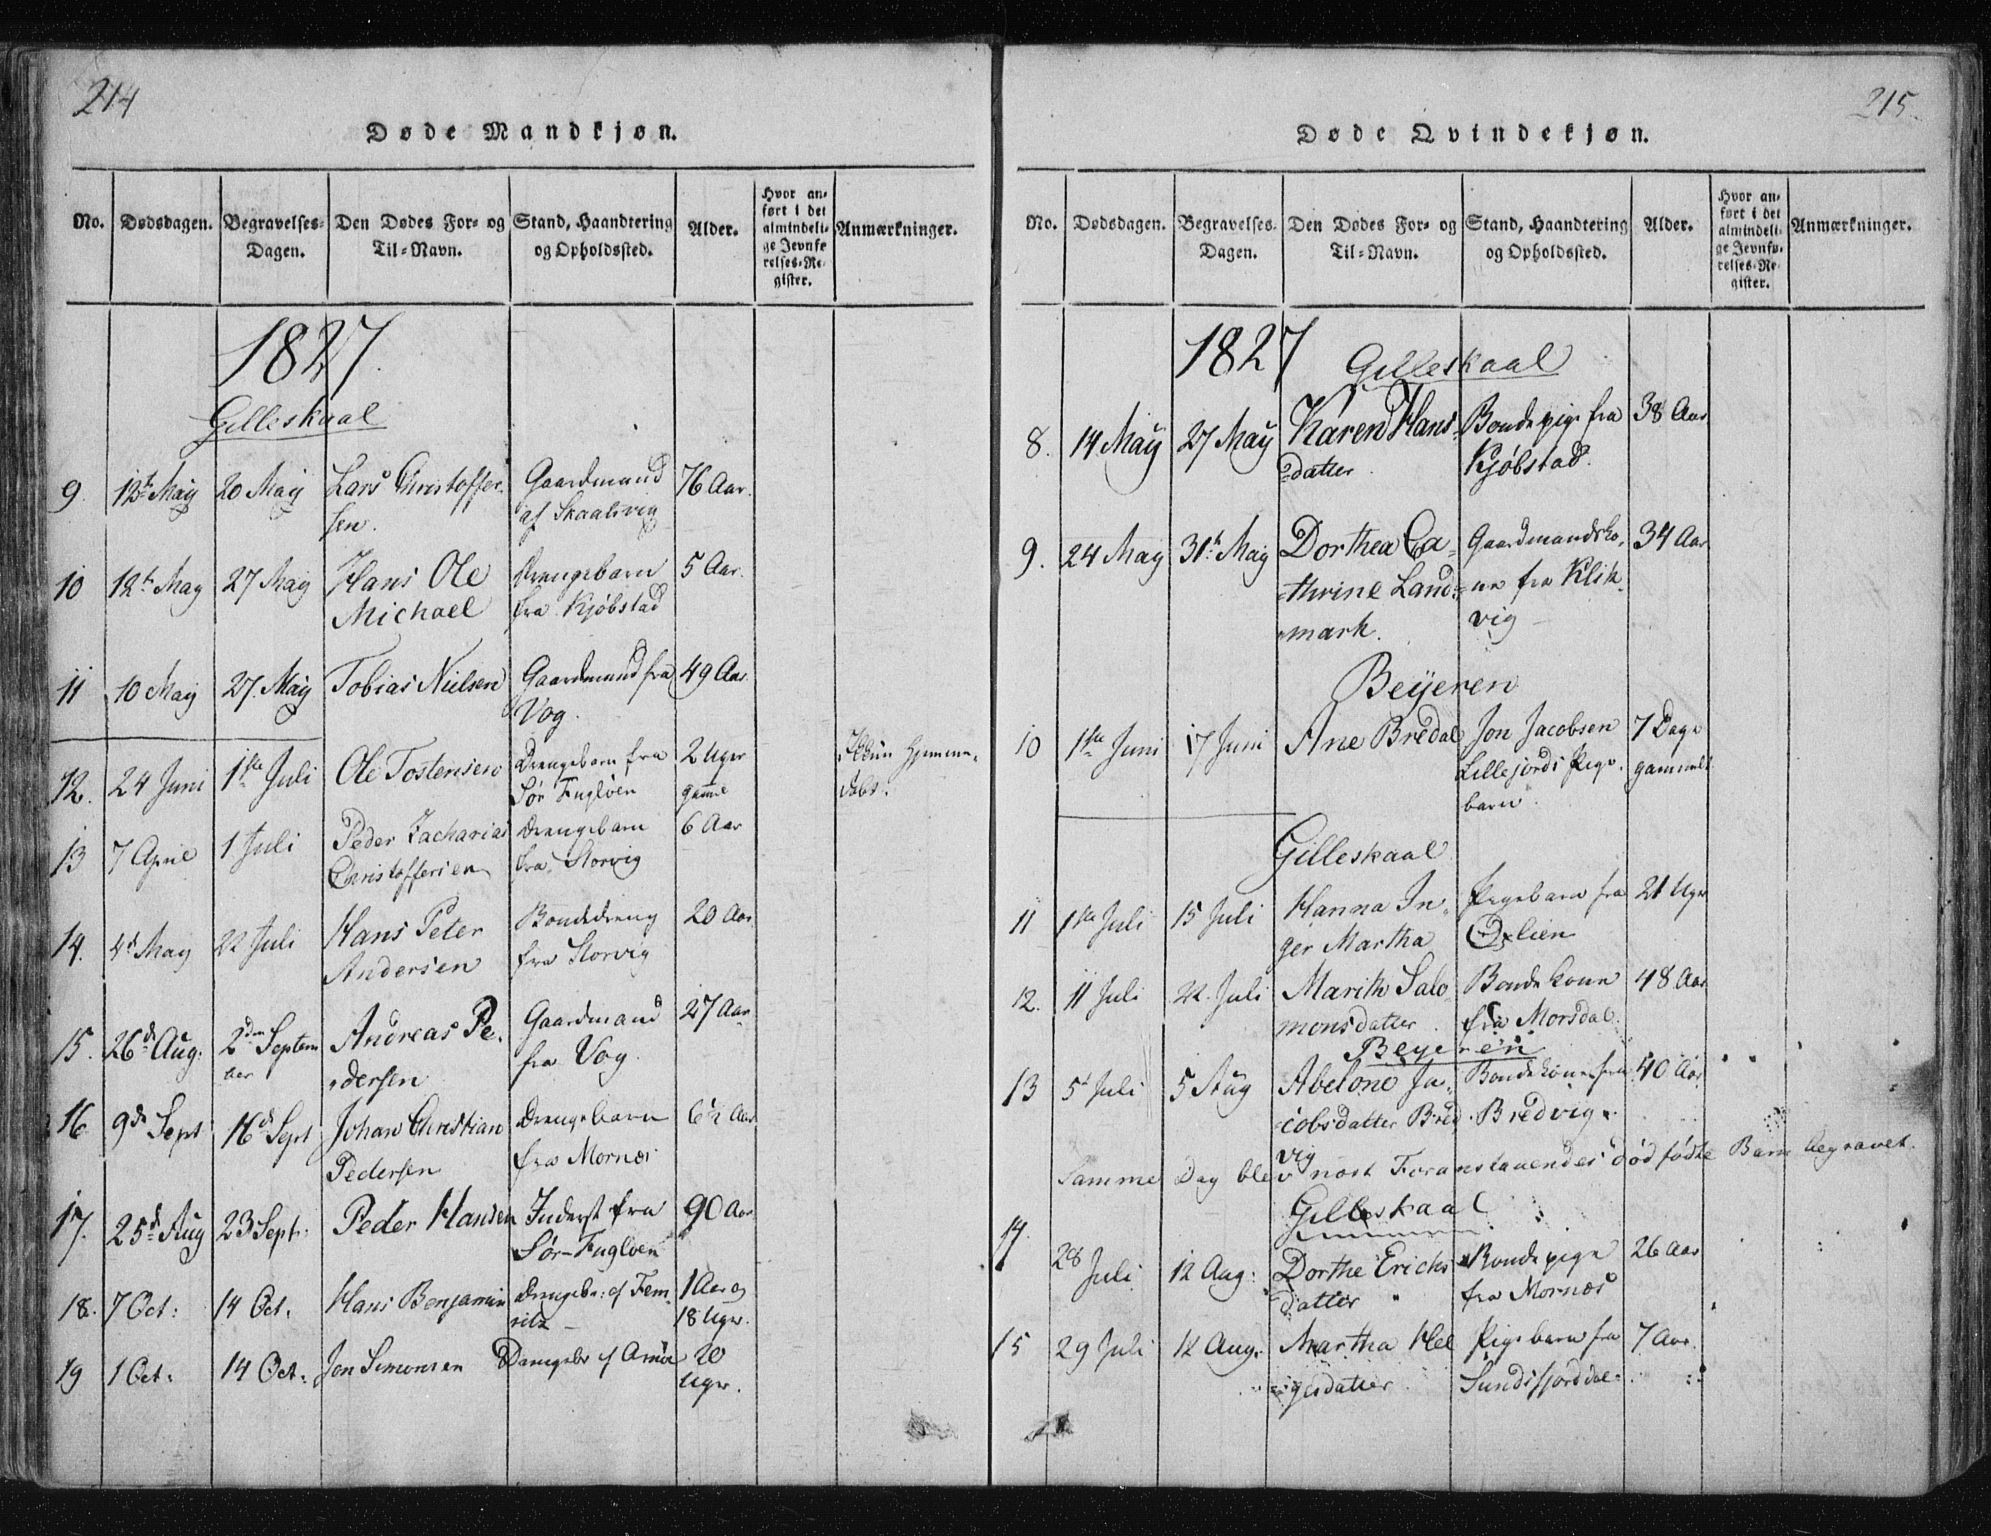 214
Døde Mandkjøn.
No. Dødsdagen. Begravelses-Dagen. Den Dødes For- og Til-Navn. Stand, Haandtering og Opholdssted. Alder. Hvor anført i det almindelige Jevnførelses-Register. Anmærkninger.
1827.
Gilleskaal
9. 12te May 20 May Lars Christoffer- Gaardmand 76 Aar.
sen. af Skaalsvig
10 12te May 27 May Hans Ole Drengebarn 5 Aar.
Michael fra Kjøbstad
11 10 May 27. May Tobias Nielsen Gaardmand fra 49 Aar.
Vog.
12. 24 Juni 1ste Juli Ole Tostensen Drengebarn fra 2 Uger
Sør Fugløen gamle
Hjemme-
døbt.
13 7 April 1 Juli Peder Zacharias Drengebarn 6 Aar
Christoffersen fra Storvig
14. 4de May 22 Juli Hans Peter Bondedreng 20 Aar
Andersen fra Storvig
15. 26de Aug: 2den Septem Andreas Pe- Gaardmand 27 Aar
ber dersen fra Vog.
16 9de Sept 16de Sept Johan Christian Drengebarn 6½ Aar
Pedersen fra Mornæs
17. 25de Aug 23 Sept: Peder Hansen Inderst fra 90 Aar
Sør-Fugløen
18. 7 Oct: 14 Oct. Hans Benjamin Drengebr: af Fem- 1 Aar og
18 Uger.
19 1 Oct: 14 Oct. Jon Simonsen Drengebr af Arnøe 20
Uger.
215.
Døde Qvindekjøn.
No. Dødsdagen. Begravelses-Dagen. Den Dødes For- og Til-Navn. Stand, Haandtering og Opholdssted. Alder. Hvor anført i det almindelige Jevnførelses-Register. Anmærkninger.
1827 Gilleskaal
8. 14 May 27 May Karen Hans Bondepige fra 38 Aar
datter. Kjøbstad.
9. 24 May 31te May Dorthea Ca- Gaardmandsko- 34 Aar
thrine Land- ne fra Klik-
mark. vig
Beyeren
10 1ste Juni 17 Juni Ane Bredal Jon Jacobsen 7 Dage
Lillejords Pige- gammelt
barn.
Gilleskaal
11 1ste Juli 15 Juli Hanna In- Pigebarn fra 21 Uger
ger Martha Oxlien
12. 11 Juli 22. Juli Marith Salo Bondekone 48 Aar
monsdatter. fra Morsdal.
Beyeren
13 5te Juli 5 Aug Abelone Ja- Bondekone fra 40 Aar
cobsdatter Bred Bredvig.
vig
Samme Dag blev næst Foranstaaendes dødfødte Barn begravet.
Gilleskaal
14. 28 Juli 12 Aug: Dorthe Erichs Bondepige 26 Aar
datter fra Mornæs
15 29 Juli 12 Aug. Martha Hel Pigebarn fra 7 Aar
gesdatter Sundsfjorddal.